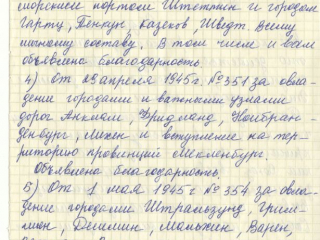 морским портом Штеттин и городам
Гартц, Пенкун, Казеков, Шведт. Всему
личному составу. В том числе и вам
объявлена благодарность
4) От 29 апреля 1945г. №351 за овла-
дение городами и важными узлами
дорог Анклам, Фридланд, Нойбран-
денбург, Лихен и вступление на тер-
риторию провинций Мекленбург.
Объявлена благодарность.
5) От 1 мая 1945г №354 за овла-
дение городами Штральзунд, Грим-
мен, Деммин, Мальхин, Варен,